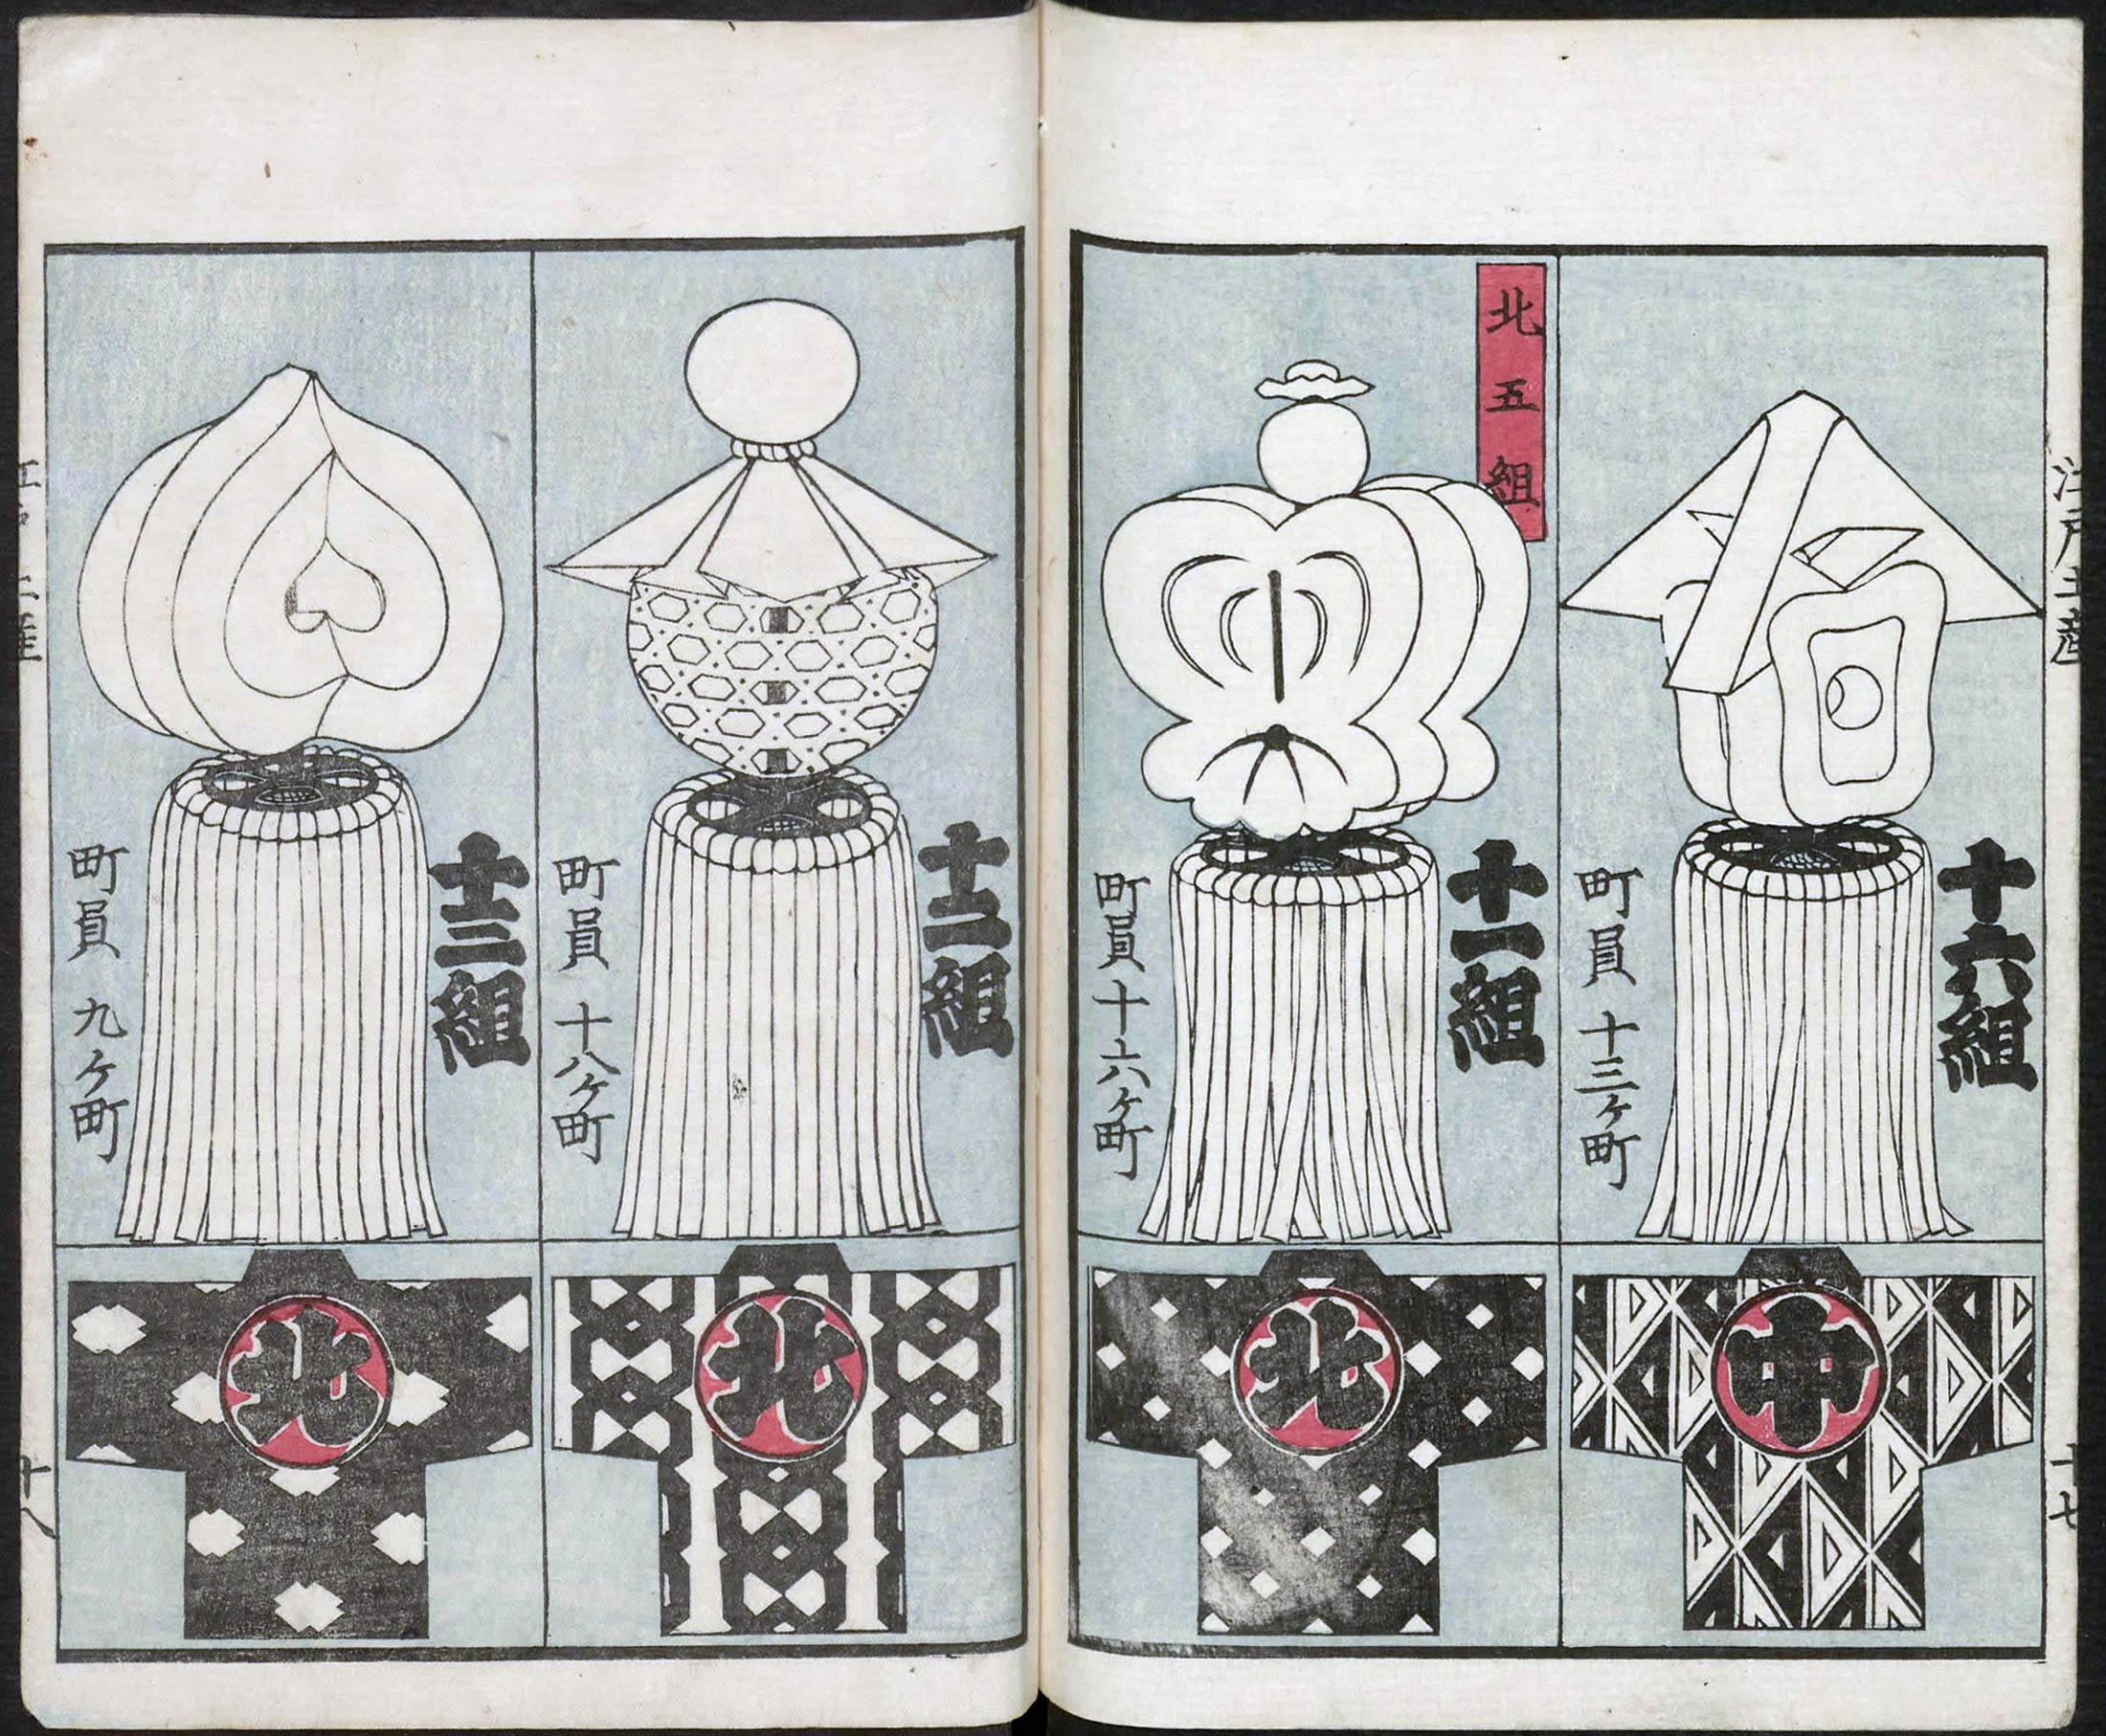 江戸土産
十七
十六組
町員 十三ケ町
中
北五組
十一組
町員十六ケ町
北
十二組
町員 十八ケ町
北
十三組
町員 九ケ町
北
十八